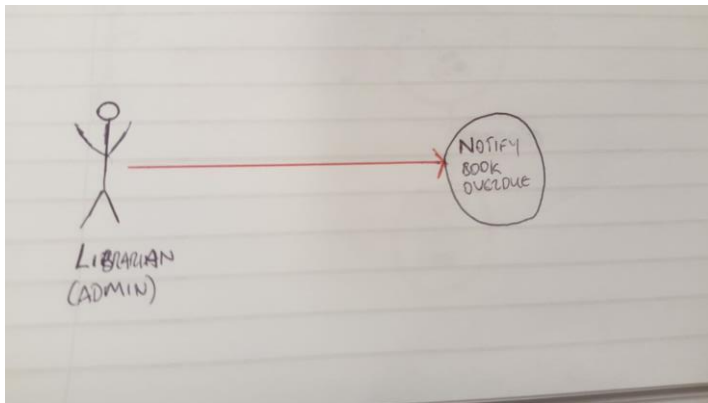 LIBRARIAN
(ADMIN)
NOTIFY
BOOK
OVERDUE